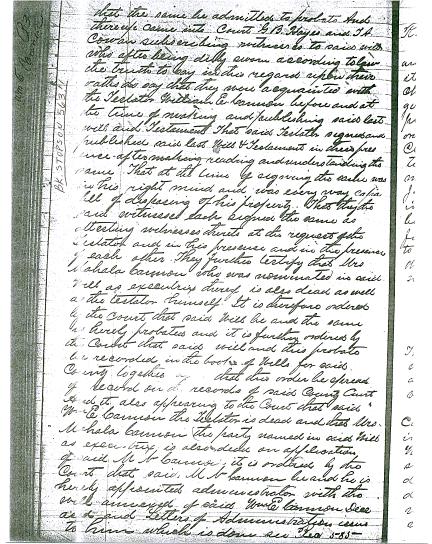 that the same be admitted to probate And
thereupon came into Court G.B. Hayes and T.A.
Cowan subscribing witnesses to said will
who after being duly sworn according to law
the truth to say in this regard upon their
oaths do say that they were acquainted with
the Testator William E Cannon before and at
the time of making and publishing said last
will and Testament That said Testator signed and
published said last Will & Testament in their pres
ence after making reading and understanding the
same. That at the time of signing the same was
in his right mind and was every way capa
ble of disposing of his property. That they the
said witnesses each signed the same as
attesting witnesses thereto at the request of the
Testator and in his presence and in the presence
of each other. They further testify that Mrs
Mahala Cannon who was nominated in said
will as executrix thereof is also dead as well
as the testator himself. It is therefore ordered
by the Court that said Will be and the same
is hereby probated and it is further ordered by
the Court that said will and this probate
be recorded in the book of Wills for said
County together that this order be spread
of record on the records of said County Court
And it also appearing to the Court that said
Wm E Cannon the Testator is dead and that Mrs.
Mahala Cannon the party named in said Will
as executrix is also dead on application
of said M B Cannon, it is ordered by the
Court that said M B Cannon be and he is
hereby appointed administrator with the
will annexed of said Wm E Cannon Dece
ased and Letters of Administration issue
to him which is done see Page 585
BK STOPS ON 563